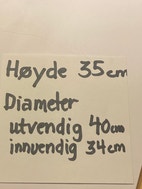 Høyde 35cm
Diameter
utvendig 40cm
innvendig 34cm